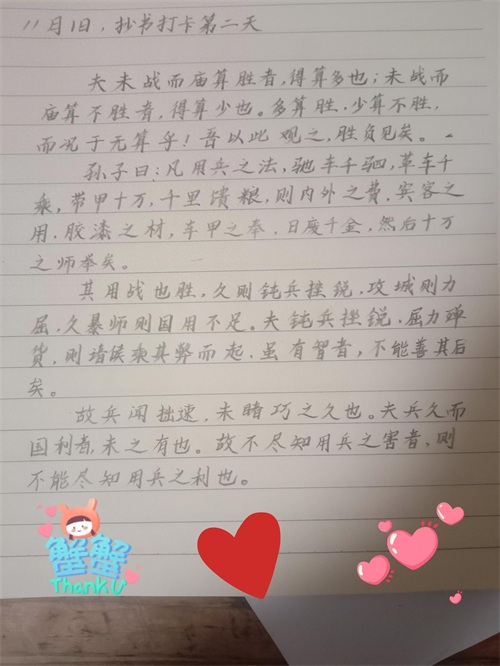 11月1日，抄书打卡第二天
夫未战而庙算胜者，得算多也；未战而
庙算不胜者，得算少也。多算胜，少算不胜，
而况于无算乎！吾以此观之，胜负见矣。
孙子曰：凡用兵之法，驰车千驷，革车千
乘，带甲十万，千里馈粮，则内外之费，宾客之
用，胶漆之材，车甲之奉，日废千金，然后十万
之师举矣。
其用战也胜，久则钝兵挫锐，攻城则力
屈，久暴师则国用不足。夫钝兵挫锐，屈力殚
货，则诸侯乘其弊而起，虽有智者，不能善其后
矣。
故兵闻拙速，未睹巧之久也。夫兵久而
国利者，未之有也。故不尽知用兵之害者，则
不能尽知用兵之利也。
蟹蟹
Thank U